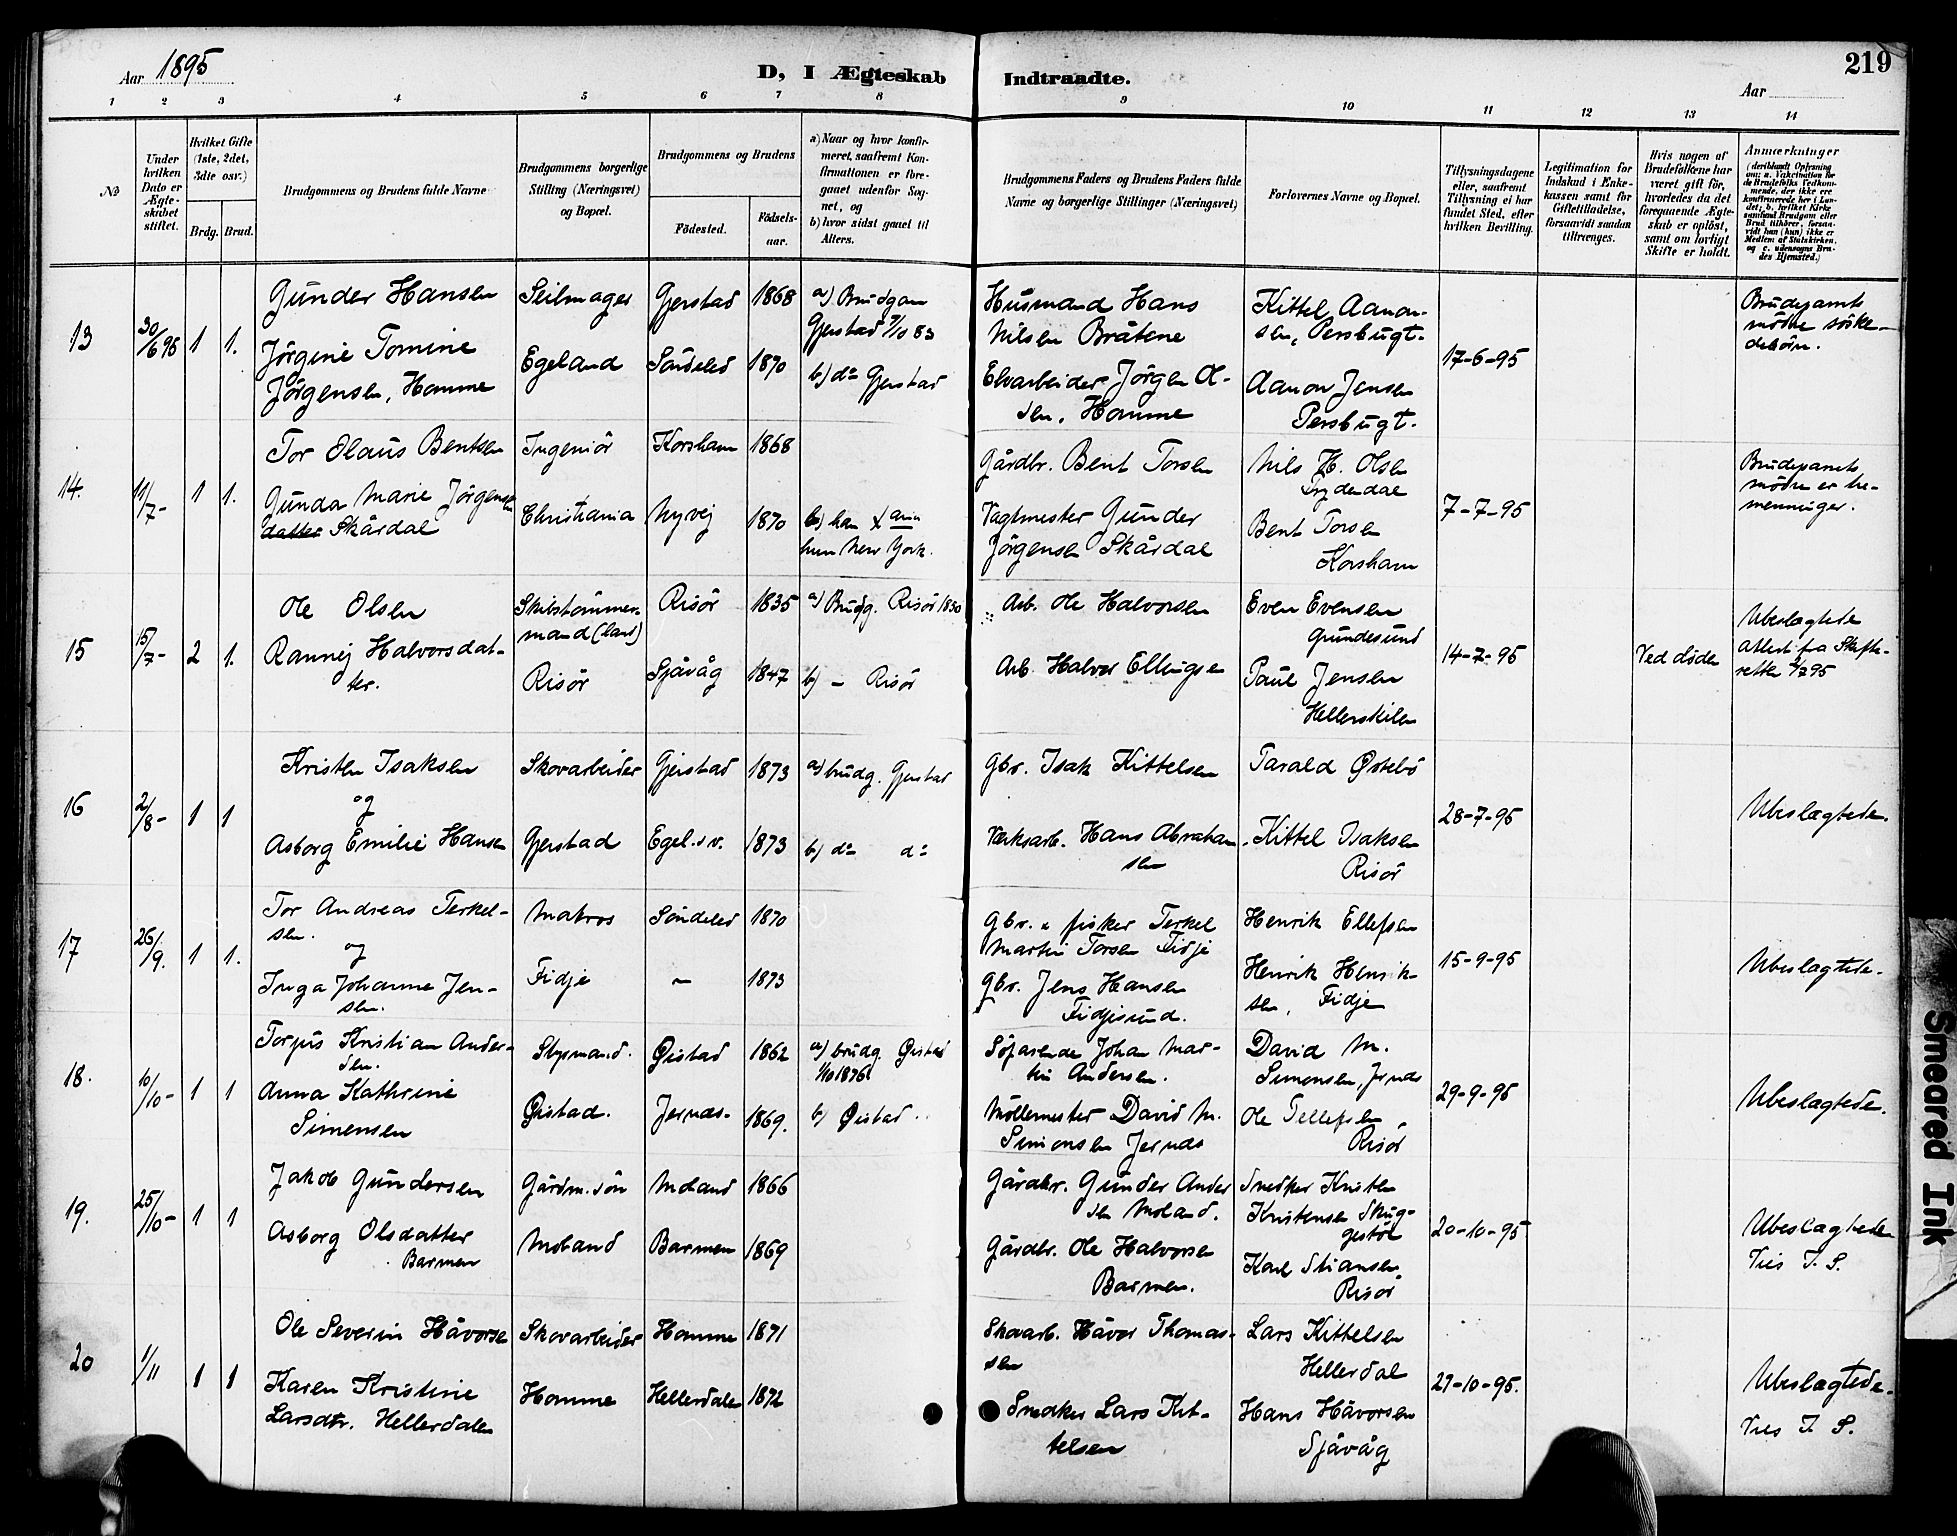 Aar 1895
D, I Ægteskab Indtraadte.
219
Aar
1 2 3 4 5 6 7 8 9 10 11 12 13 14
№
Under hvilken Dato er Ægteskabet stiftet.
Hvilket Gifte (1ste, 2det, 3die osv.)
Brdg. Brud.
Brudgommens og Brudens fulde Navne
Brudgommens borgerlige Stilling (Næringsvei) og Bopæl.
Brudgommens og Brudens
Födested.
Födselsaar.
a) Naar og hvor konfirmeret, saafremt Konfirmationen er foregaaet udenfor Sognet, og
b) hvor sidst gaaet til Alters.
Brudgommens Faders og Brudens Faders fulde Navne og borgerlige Stillinger (Næringsvei)
Forlovernes Navne og Bopæl.
Tillysningsdagene eller, saafremt Tillysning ei har fundet Sted, efter hvilken Bevilling.
Legitimation for Indskud i Ænkekassen samt for Giftetilladelse, forsaavidt saadan tiltrænges.
Hvis nogen af Brudefolkene har været gift för, hvorledes da det foregaaende Ægteskab er oplöst, samt om lovligt Skifte er holdt.
Anmærkninger
(deriblandt Oplysning om: a. Vakcination for de Brudefolks Vedkommende, der ikke ere konfirmerede her i Landet; b. hvilket Kirkesamfund Brudgom eller Brud tilhörer, forsaavidt han (hun) ikke er Medlem af Statskirken, og c. udensogns Brudes Hjemsted.)
13 30/6 95 1 1.
Gunder Hansen
Jörgine Tomine
Jörgensen, Homme
Seilmager
Egeland
Gjerstad 1868
Söndeled 1870
a) Brudgom
Gjerstad 7/10 83
b) do Gjerstad
Husmand Hans
Nilsen Bråtene
Elvarbeider Jörgen Olsen, Homme
Kittel Aanonsen, Persbugt.
Aanon Jensen
Persbugt.
17-6-95
Brudeparrets
mödre söskendebörn.
14. 11/7- 1 1.
Tor Olaus Bentsen
Gunda Marie Jörgensen
datter Skårdal
Ingeniör
Christiania
Korsham 1868
Nyvej 1870
b) han Xania
hun New York.
Gårdbr. Bent Torsen
Vagtmester Gunder
Jörgensen Skårdal
Nils H. Olsen
Frydendal
Bent Torsen
Korsham
7-7-95
Brudeparrets
mödre er tremenninger.
15 15/7- 2 1.
Ole Olsen
Rannej Halvorsdatter.
Skibstömmermand (land)
Risör
Risör 1835
Sjåvåg 1847
a) Brudg. Risör 1850
b) – Risör
Arb. Ole Halvorsen
Arb. Halvor Ellingsen
Even Evensen
Gundesund
Paul Jensen
Hellerskilen
14-7-95
Ved döden
Ubeslægtede
attest fra Skifteretten 4/7 95
16 2/8- 1 1
Kristen Isaksen
og
Asborg Emilie Hansen
Skovarbeider
Gjerstad
Gjerstad 1873
Egel.s v. 1873
a) brudg. Gjerstad
b) do do
Gbr. Isak Kittelsen
Værksarb. Hans Abrahamsen
Tarald Östebö
Kittel Isaksen
Risör
28-7-95
Ubeslægtede.
17 26/9. 1 1.
Tor Andreas Terkelsen.
og
Inga Johanne Jensen.
Matros
Fidje
Söndeled 1870
– 1873
Gbr. & fisker Terkel
Martin Torsen Fidje
Gbr. Jens Hansen
Fidjesund.
Henrik Ellefsen
Henrik Henriksen, Fidje
15-9-95
Ubeslægtede.
18. 10/10- 1 1
Torjus Kristian Andersen.
Anna Kathrine
Simensen
Styrmand.
Öistad.
Öistad 1862
Jernæs- 1869.
a) brudg. Öistad
1/10 1876
b) Öistad.
Söfarende Johan Martin Andersen.
Möllemester David M.
Simonsen Jernæs
David M.
Simonsen, Jernæs
Ole Tellefsen
Risör
29-9-95
Ubeslægtede.
19. 25/10- 1 1
Jakob Gundersen
Asborg Olsdatter
Barmen
Gårdm. sön
Moland
Moland 1866
Barmen 1869
Gårdbr. Gunder Andersen Moland.
Gårdbr. Ole Halvorsen
Barmen.
Snedker Kristen
Kristensen Skuggestöl
Karl Stiansen
Risör
20-10-95
Ubeslægtede
Vies I. S.
20 1/11 1 1
Ole Severin Håvorsen
Karen Kristine
Larsdtr. Hellerdalen
Skovarbeider
Homme
Homme 1871
Hellerdalen 1872
Skovarb. Håvor Thomassen
Snedker Lars Kittelsen
Lars Kittelsen
Hellerdal
Hans Håvorsen
Sjåvåg
27-10-95.
Ubeslægtede.
Vies I. S.
Smeared Ink